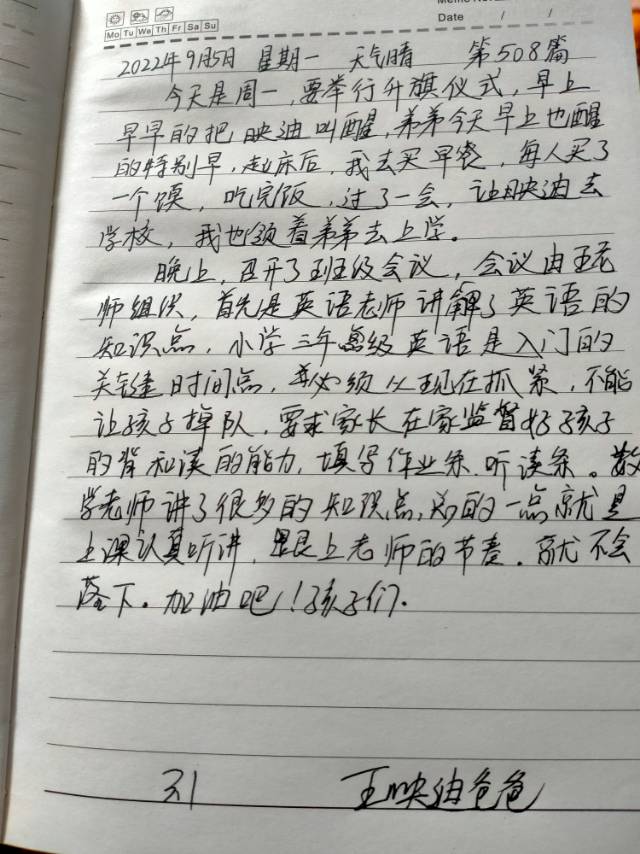 Mo Tu We Th Fr Sa Su
Date / /
2022年9月5日 星期一 天气晴 第508篇
今天是周一,要举行升旗仪式,早上
早早的把映油叫醒,弟弟今天早上也醒
的特别早,起床后,我去买早餐,每人买了
一个馍,吃完饭,过了一会,让映油去
学校,我也领着弟弟去上学。
晚上,召开了班级会议,会议由王老
师组织,首先是英语老师讲解了英语的
知识点,小学三年级英语是入门的
关键时间点,必须从现在抓紧,不能
让孩子掉队,要求家长在家监督好孩子
的背和读的能力,填写作业条,听读条。数
学老师讲了很多的知识点,的一点就是
上课认真听讲,跟上老师的节奏。就不会
落下。加油吧!孩子们.
王映油爸爸